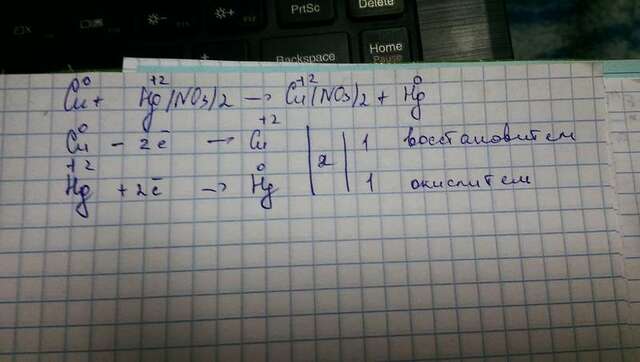 PrtSc
Delete
Backspace
Home
Pause
Cu⁰ + Hg⁺²(NO3)2 → Cu⁺²(NO3)2 + Hg⁰
Cu⁰ - 2ē → Cu⁺² | 2 | 1 восстановитель
Hg⁺² + 2ē → Hg⁰ | | 1 окислитель